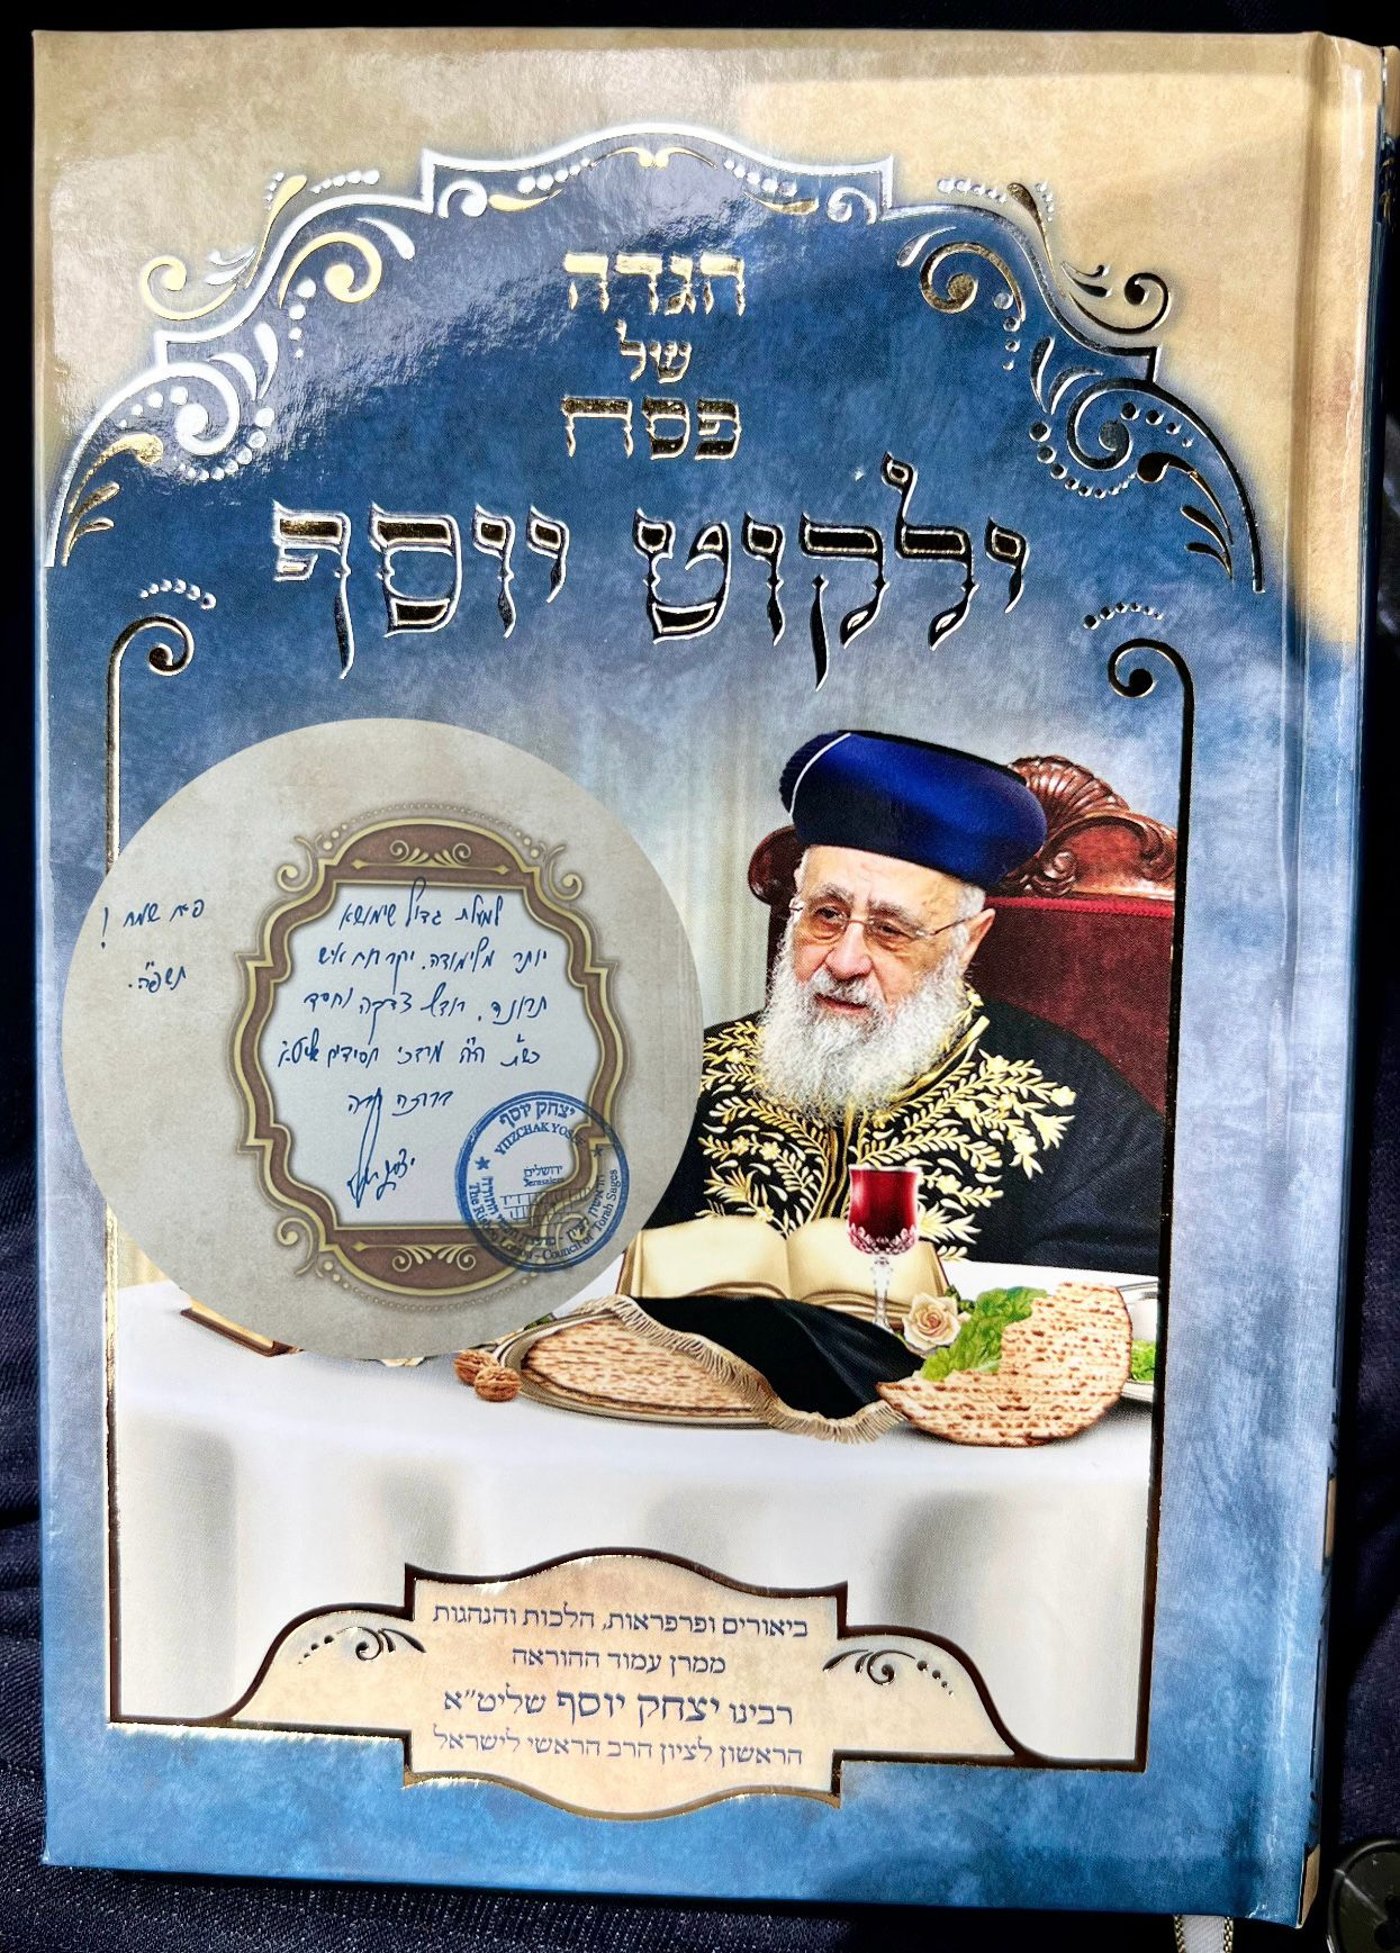 הגדה
של
פסח
ילקוט יוסף
פסח שמח !
תשפ״ה.
למעלת גדול שימושא
יותר מלימודה. יקר רוח איש
תבונה. רודף צדקה וחסד
כש״ת ה״ה מרדכי חסידים שליט״א
ברכה
יצחק יוסף
יצחק יוסף
YITZCHAK YOSEF
ירושלים
Jerusalem
The Rishon Lezion - Council of Torah Sages
ביאורים ופרפראות, הלכות והנהגות
ממרן עמוד ההוראה
רבינו יצחק יוסף שליט״א
הראשון לציון הרב הראשי לישראל